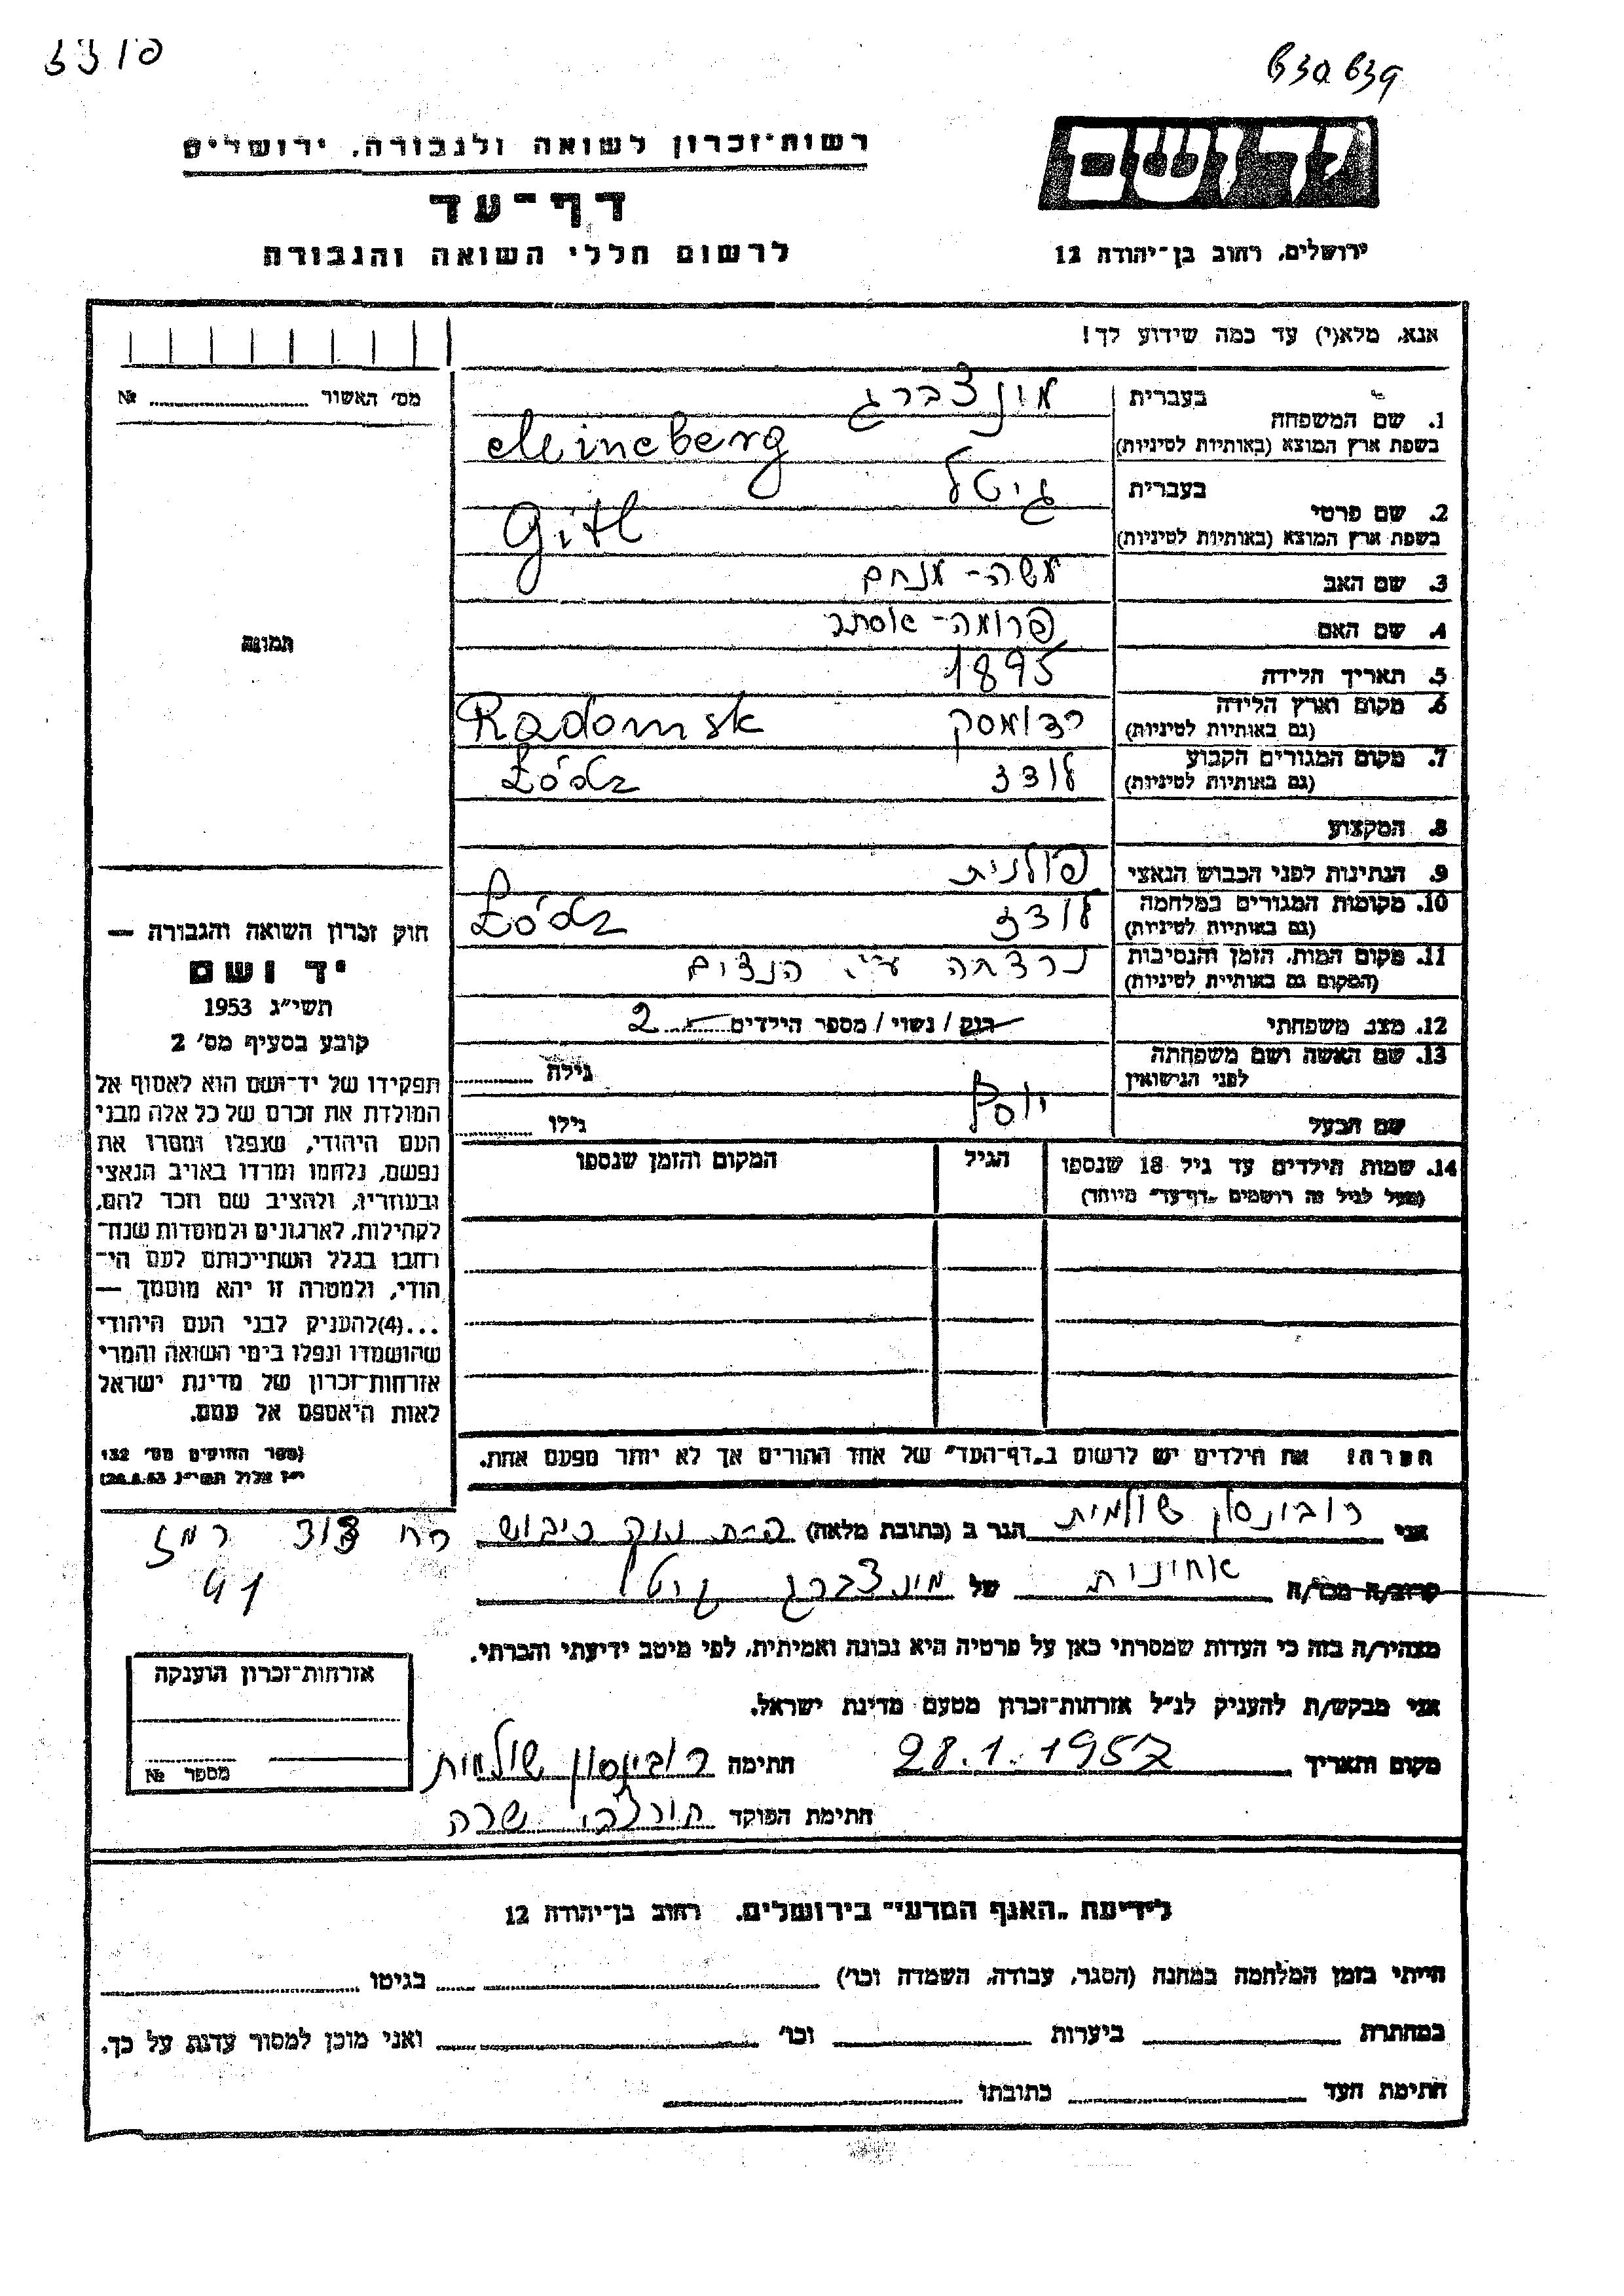 רשות־זכרון לשואה ולגבורה, ירושלים
דף־עד
לרשום חללי השואה והגבורה
ירושלים, רחוב בן־יהודה 12
אנא, מלא(י) עד כמה שידוע לך!
מס׳ האשור № ........
1. שם המשפחה
בעברית
מינצברג
בשפת ארץ המוצא (באותיות לטיניות)
Mincberg
2. שם פרטי
בעברית
גיטל
בשפת ארץ המוצא (באותיות לטיניות)
Gitl
3. שם האב
משה - מנחם
4. שם האם
פרומה - אסתר
5. תאריך הלידה
1895
6. מקום וארץ הלידה
(גם באותיות לטיניות)
רדומסק Radomsk
7. מקום המגורים הקבוע
(גם באותיות לטיניות)
לודז Łódz
8. המקצוע
9. הנתינות לפני הכבוש הנאצי
פולנית
10. מקומות המגורים במלחמה
(גם באותיות לטיניות)
לודז Łódz
11. מקום המות, הזמן והנסיבות
(המקום גם באותיות לטיניות)
נרצחה ע״י הנצים
12. מצב משפחתי
רוק / נשוי / מספר הילדים 2
13. שם האשה ושם משפחתה
לפני הנישואין
גילה
שם הבעל
יוסף
גילו
14. שמות הילדים עד גיל 18 שנספו
(מעל לגיל זה רושמים „דף־עד״ מיוחד)
הגיל
המקום והזמן שנספו
הערה: את הילדים יש לרשום ב„דף־העד״ של אחד ההורים אך לא יותר מפעם אחת.
תמונה
חוק זכרון השואה והגבורה —
יד ושם
תשי״ג 1953
קובע בסעיף מס׳ 2
תפקידו של יד־ושם הוא לאסוף אל
המולדת את זכרם של כל אלה מבני
העם היהודי, שנפלו ומסרו את
נפשם, נלחמו ומרדו באויב הנאצי
ובעוזריו, ולהציב שם וזכר להם,
לקהילות, לארגונים ולמוסדות שנח־
רבו בגלל השתייכותם לעם הי־
הודי, ולמטרה זו יהא מוסמך —
...(4)להעניק לבני העם היהודי
שהושמדו ונפלו בימי השואה והמרי
אזרחות־זכרון של מדינת ישראל
לאות היאספם אל עמם.
(ספר החוקים מס׳ 132
י״ז אלול תשי״ג 28.8.53)
אני רובינסון שולמית הגר ב (כתובת מלאה)
רח דוד רמז
41
קרוב/ה מכר/ה אחינית של מינצברג גיטל
מצהיר/ה בזה כי העדות שמסרתי כאן על פרטיה היא נכונה ואמיתית, לפי מיטב ידיעתי והכרתי.
אני מבקש/ת להעניק לנ״ל אזרחות־זכרון מטעם מדינת ישראל.
מקום ותאריך 28.1.1957 חתימה רובינסון שולמית
חתימת הפוקד שרה
אזרחות־זכרון הוענקה
מספר №
לידיעת „האגף המדעי״ בירושלים, רחוב בן־יהודה 12
הייתי בזמן המלחמה במחנה (הסגר, עבודה, השמדה וכו׳) ........ בגיטו ........
במחתרת ........ ביערות ........ וכו׳ ........ ואני מוכן למסור עדות על כך.
חתימת העד ........ כתובתו ........